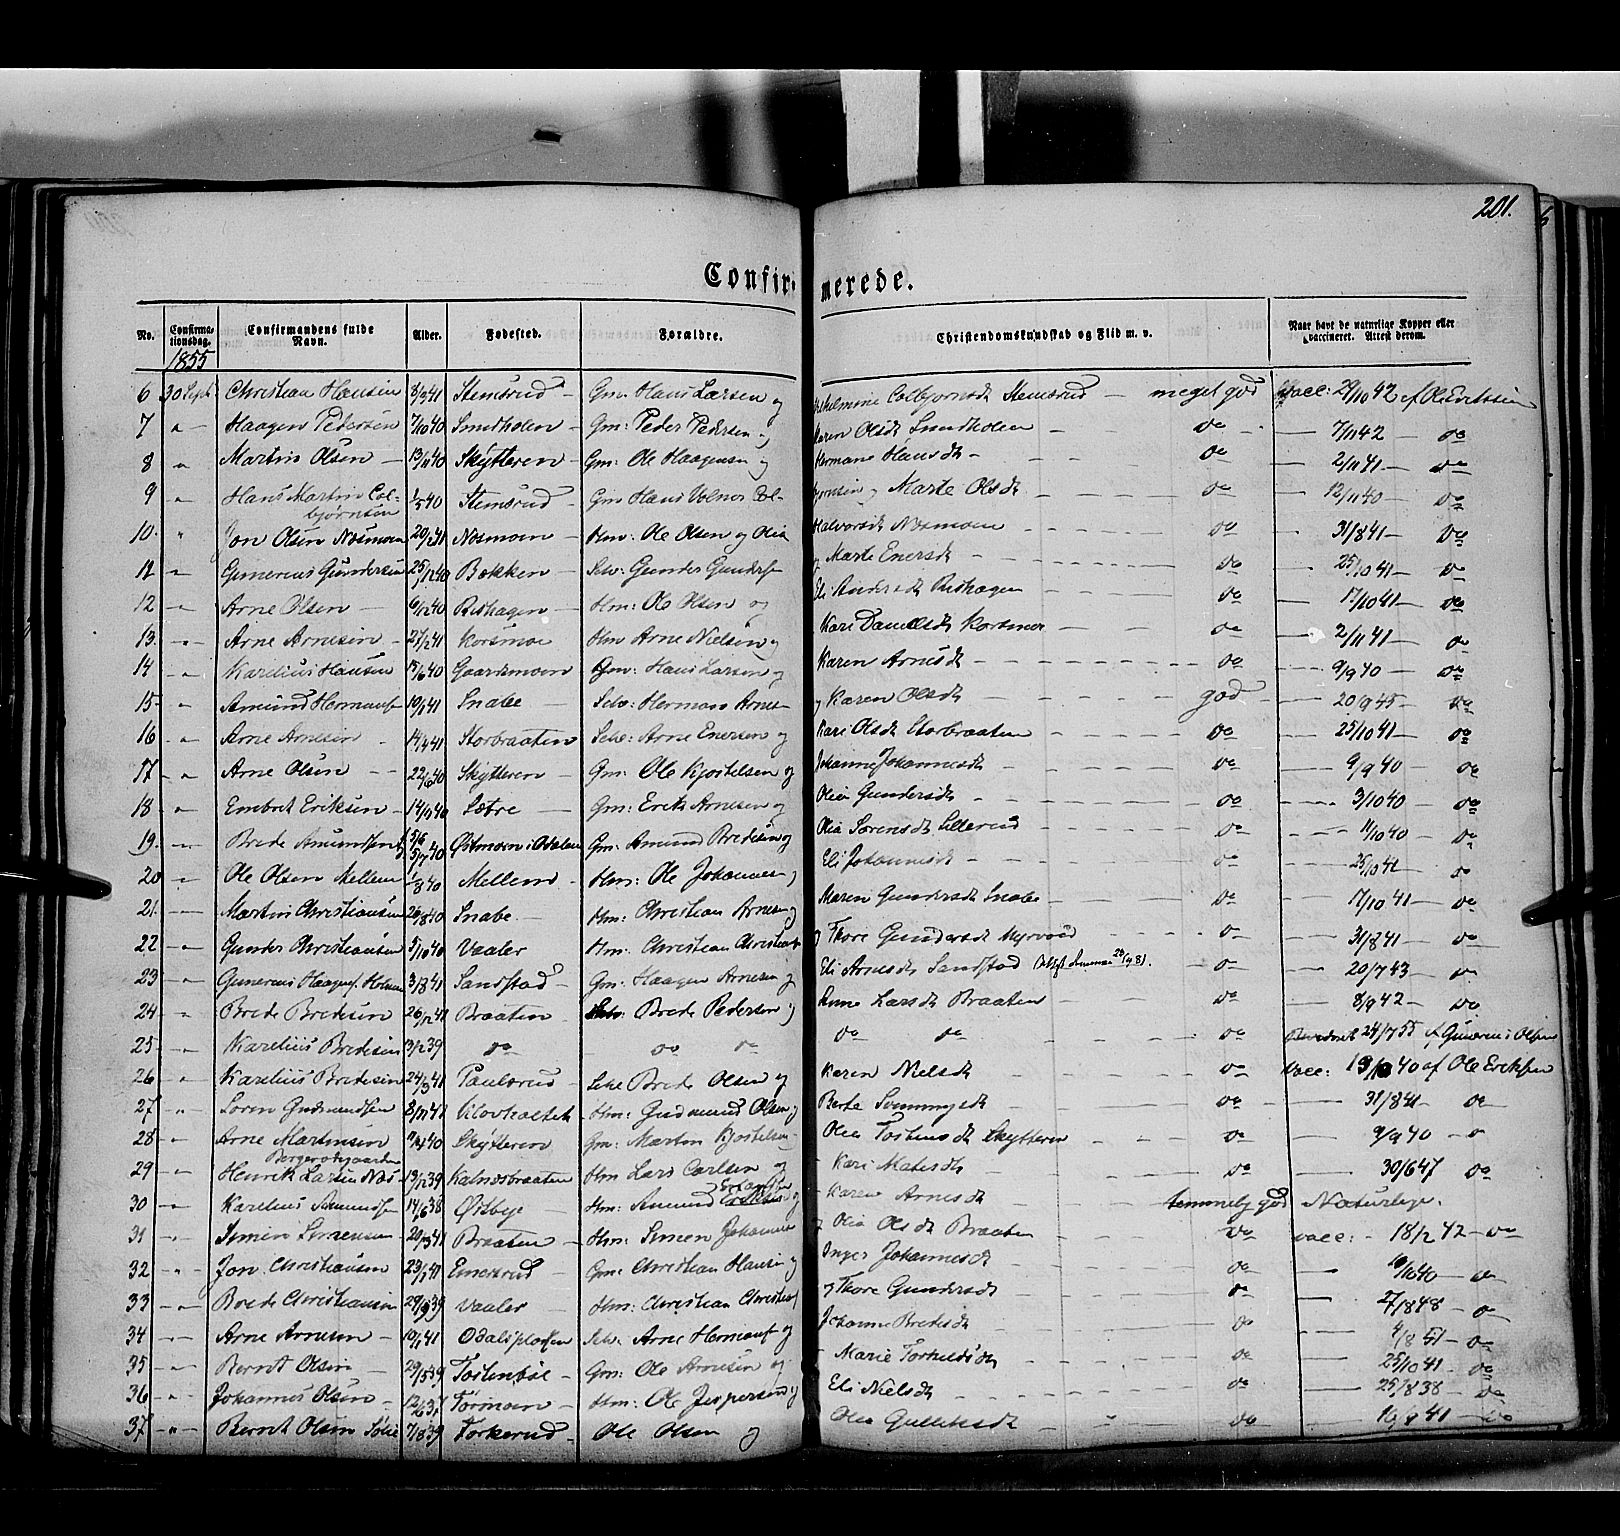 201.
Confirmerede.
No. Confirmationsdag. Confirmandens fulde Navn. Alder. Fødested. Forældre. Christendomskundskab og Flid m. v. Naar havt de naturlige Kopper eller vaccineret. Attest derom.
1855
6 30 Sept. Christian Hansen 8/3 41 Stemsrud Gm. Hans Larsen og Colbjørnsdt Stemsrud — meget god vacc: 29/10 42 af Ole Eriksen
7 " Haagen Pedersen 7/10 40 Smidholen Gm: Peder Pedersen og Karen Olsdt Smidholen — do 7/11 42 — do
8 " Martin Olsen 13/11 40 Skÿtteren Gm: Ole Haagensen og Hermane Hansdt — do 2/11 41 — do
9 " Hans Martin Colbjørnsen 1/5 40 Stemsrud Gm Hans Volmer Colbjørnsen og Marte Olsdt — do 12/11 40 — do
10. " Jon Olsen Næsmoen 20/2 41 Næsmoen Hm: Ole Olsen og Olia Halvorsdt Næsmoen — do 31/8 41 — do
11 " Gunerius Gundersen 25/12 40 Bakken Selv: Gunder Gunders og Marte Enersdt — do 25/10 41 — do
12 " Arne Olsen 6/12 40 Rishagen Hm: Ole Olsen og Eli Andersdt Rishagen — do 17/10 41 — do
13. " Arne Arnesen 27/2 41 Korsmoe Hm Arne Nielsen og Kari Danielsdt Korsmoe — do 2/11 41 — do
14 " Karelius Hansen 15/6 40 Gaardsmoen Gm: Hans Larsen og Karen Arnesdt — do 9/9 40 — do
15 " Amund Hermansen 10/1 41 Snabe Selv: Herman Arnes og Karen Olsdt — god — 20/9 45 — do
16 " Arne Arnesen 14/4 41 Storbraaten Selv: Arne Enersen og Kari Olsdt Storbraaten — do 25/10 41 — do
17 " Arne Olsen 22/6 40 Skÿtteren Gm: Ole Kjostelsen og Johanne Johannesdt — do 9/9 40 — do
18 " Embret Eriksen 14/9 40 Sætre Gm: Erik Arnesen og Olia Gundersdt — do 3/10 40 — do
19. " Brede Amundsen 5/7 40 Østmoen i Odalen Gm: Amund Bredesen og Olia Sørensdt — do 11/10 40 — do
20 " Ole Olsen Mellem 1/8 40 Mellem Hm: Ole Johannes og Eli Johannesdt — do 25/10 41 — do
21. " Martin Christiansen 26/8 40 Snabe Hm: Christian Arnesen og Maren Gundersdt Snabe — do 17/10 41 — do
22 " Gunder Christiansen 5/10 40 Vaaler Hm. Christian Christians og Thore Gundersdt Myrvold — do 31/8 41 — do
23 " Gunerius Haagens. Holmen 3/8 41 Sandstad Gm: Haagen Arnesen og Eli Arnesdt Sandstad — do 20/7 43 — do
24 " Brede Bredesen 26/12 41 Braaten Brede Pedersen og Anne Larsdt Braaten — do 8/9 42 — do
25 " Karelius Bredesen 13/2 39 do do do do do do 24/7 55 af Gunerius Olsen
26 " Karelius Bredesen 24/3 41 Paulsrud Selv Brede Olsen og Karen Nielsdt — do vacc: 40 af Ole Eriksen
27 " Søren Gudmundsen 8/11 41 Hm: Gudmund Olsen og Berte — do 31/8 41 — do
28 " Arne Martinsen 40 Skÿtteren Gm: Martin Kjostelsen Olia Tostensdt Skytteren — do 9/9 40 — do
29 " Henrik Larsen Næs Bergersegaarden 13/2 39 Kalnæsbraaten Hm Lars Carlsen og Kari Matesdt — do 30/6 47 do
30 " Karelius Amundsen 14/6 38 Østbye Hm: Amund og Karen Arnesdt temmelig god Naturlige.
31 " Simen Simensen 20/3 41 Braaten Hm: Simen Johannes og Olia Olsdt Braaten do vacc: 18/2 42 — do
32 " Jon Christiansen 23/1 41 Enersrud Gm: Christian Hansen og Inger Johannesdt — do 40 — do
33 " Brede Christiansen 29/3 39 Vaaler Hm: Christian Christians og Thore Gundersdt — do 27/8 48 — do
34 " Arne Arnesen 10/1 41 Odalsplassen Selv: Arne Hermans og Johanne Bredesdt — do 4/8 51 — do
35 " Bernt Olsen 29/5 39 Tostenbøl Gm: Ole Arnesen og Marie Torkildsdt — do 25/10 41 — do
36 " Johannes Olsen 12/6 37 Tørmoen Hm: Ole Jespersen og Eli Nielsdt — do 25/8 38 — do
37 " Bernt Olsen 7/8 39 Torkerud Ole Olsen og Olia Gulliksdt do 19/9 41 — do